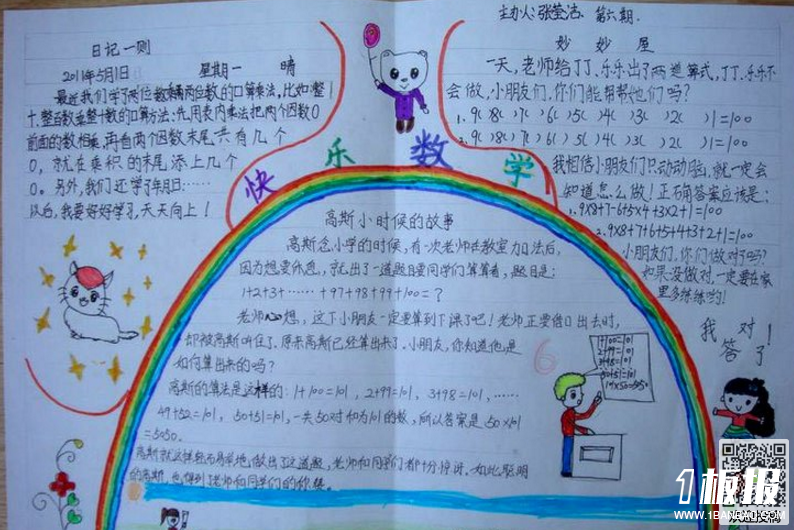 主办人:张莹洁. 第六期.
日记一则
2011年5月1日 星期一 晴
最近我们学了两位数乘两位数的口算乘法,比如:整
十、整百数乘整十数的口算方法:先用表内乘法把两个因数0
前面的数相乘,再看两个因数末尾共有几个
0,就在乘积的末尾添上几个
0。另外,我们还学了年月日……
以后,我要好好学习,天天向上!
快乐数学
妙妙屋
一天,老师给丁丁、乐乐出了两道算式,丁丁、乐乐不
会做,小朋友们,你们能帮帮他们吗?
1. 9( 8( )7( )6( )5( )4( )3( )2( )1=100
2. 9( 8( )7( )6( )5( )4( )3( )2( )1=100
我相信小朋友们只动动脑,就一定会
知道怎么做!正确答案应该是:
1. 9×8+7-6+5×4+3×2+1=100
2. 9×8+7+6+5+4+3+2+1=100
小朋友们,你们做对了吗?
如果没做对,一定要在家
里多练练哟!
我答对了!
高斯小时候的故事
高斯念小学的时候,有一次老师在教完加法后,
因为想要休息,就出了一道题目要同学们算算看,题目是:
1+2+3+……+97+98+99+100=?
老师心想,这下小朋友一定要算到下课了吧!老师正要借口出去时,
却被高斯叫住了,原来高斯已经算出来了。小朋友,你知道他是
如何算出来的吗?
高斯的算法是这样的:1+100=101,2+99=101,3+98=101,……
49+52=101,50+51=101,一共50对和为101的数,所以答案是50×101
=5050.
高斯就这样轻而易举地做出了这道题,老师和同学们都十分惊讶。如此聪明
的高斯,也得到了老师和同学们的称赞。
6
1+100=101
2+99=101
3+98=101
50+51=101
1板报
WWW.1BANBAO.COM